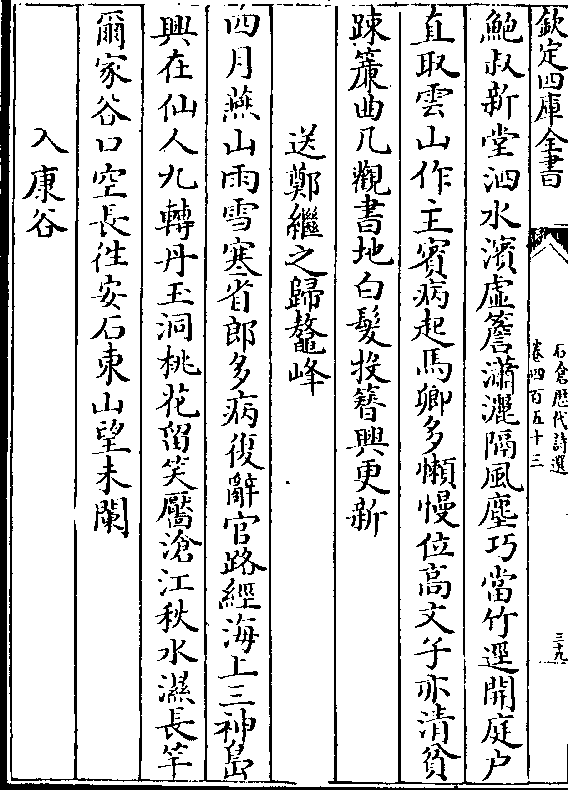 欽定四庫全書
石倉歴代詩選
卷四百五十三
三九
鮑叔新堂泗水濱虛簷瀟灑隔風塵巧當竹逕開庭户
直取雲山作主賓病起馬卿多懶慢位高文子亦清貧
踈簾曲几觀書地白髮投簪興更新
送鄭繼之歸鼇峰
四月燕山雨雪寒省郎多病復辭官路經海上三神島
興在仙人九轉丹玉洞桃花留笑靨滄江秋水濕長竿
爾家谷口空長徃安石東山望未闌
入康谷